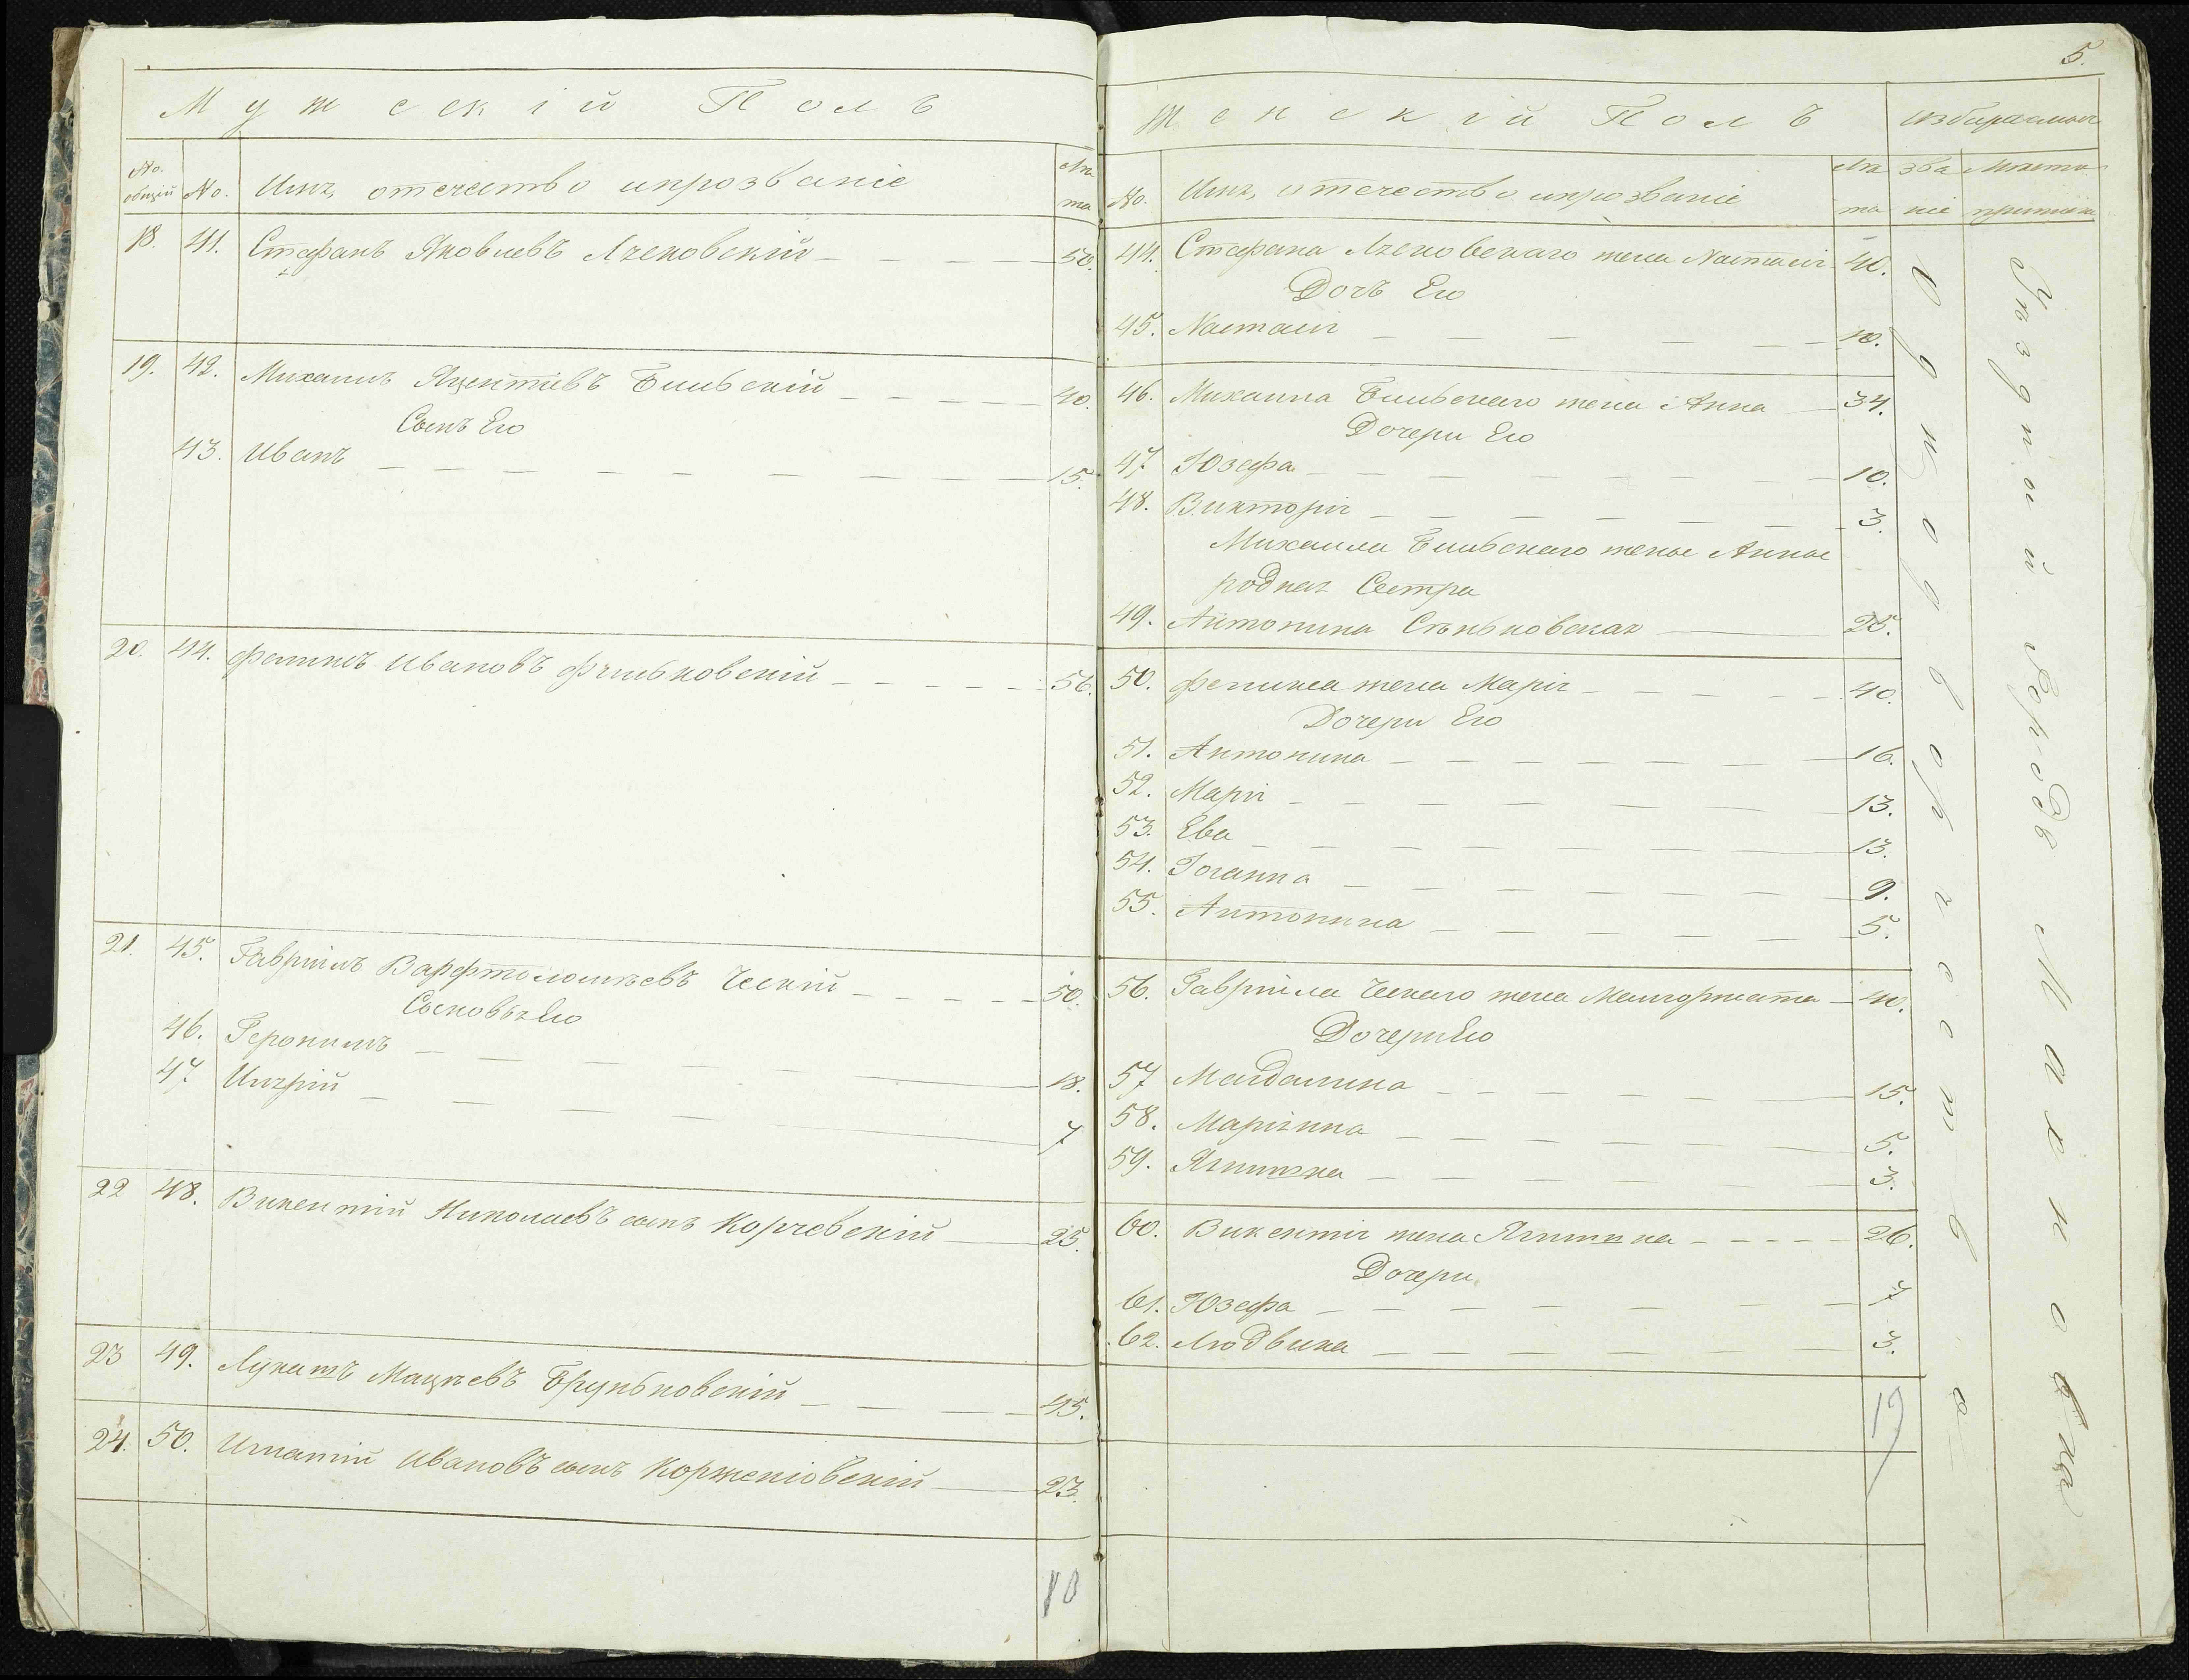 Мужескій Полъ
No. общій No. Имя, отечество ипрозваніе Лѣта
18. 41. Стефанъ Яковлевъ Лзековскій 50.
19. 42. Михаилъ Яцентіевъ Бильскій 40.
Сынъ Его
43. Иванъ 15.
20. 44. Феликсъ Ивановъ Фчильковскій 56.
21. 45. Гавріилъ Варфтоломѣевъ Ческій 50.
Сыновья Его
46. Геронимъ 18.
47 7
22 48. Викентій Николаевъ сынъ Корчевскій 25.
23 49. Лукашъ Мацѣевъ Бруньковскій 45.
24. 50. Игнатій Ивановъ сынъ Корженіовскій 23.
10
5.
Женскій Полъ избираемыя
No. Имя, отечество ипрозваніе Лѣта званіе Мѣста
44. Стефана Лзековскаго жена Настасія 40.
Дочь Его
45. Настасія 10.
46. Михаила Бильскаго жена Анна 34.
Дочери Его
47 Юзефа 10.
48. Викторія 3.
Михаила Бильскаго жены Анны
родная Сестра
49. Антонина Сѣньковская 25.
50. Феликса жена Марія 40.
Дочери Его
51. Антонина 16.
52. Марія 13.
53. Ева 13.
54. Іоанна 9.
55. Антонина 5.
56. Гавріила Ческаго жена Малгоржата 40.
Дочери Его
57 Магдалина 15.
58. Маріянна 5.
59. Ягнишка 3.
60. Викентія жена Ягнишка 26.
Дочери
61. Юзефа 7
62. Людвика 3.
19
Однодворческое
Уѣздной Городъ Махновка